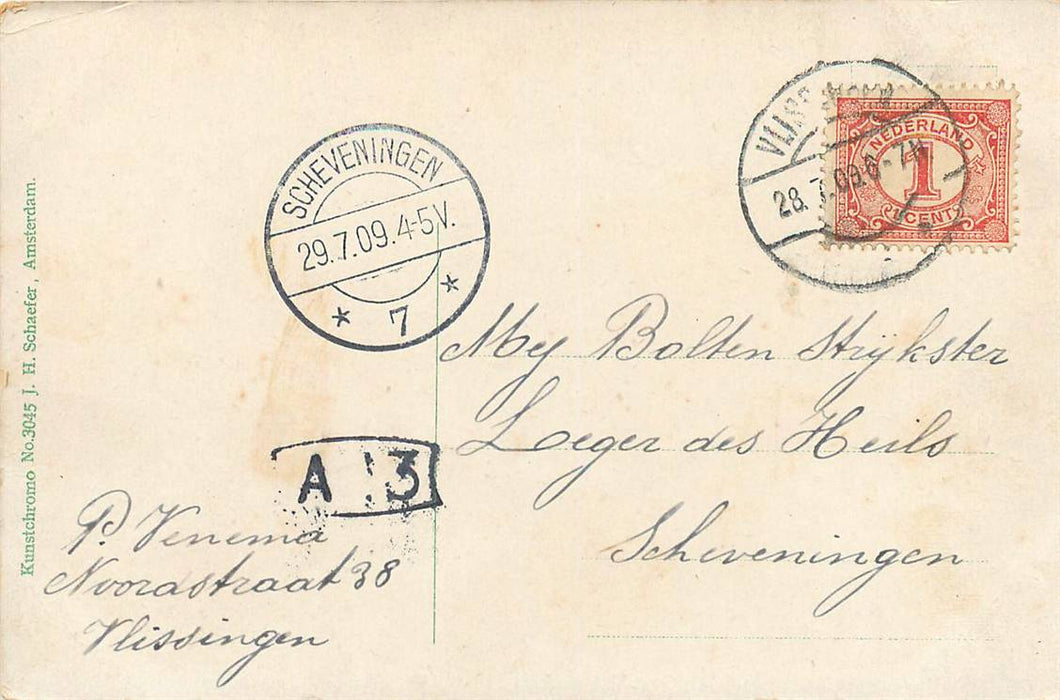 Kunstchromo No. 3045 J. H. Schaefer, Amsterdam.
SCHEVENINGEN
29.7.09.4-5V.
* 7 *
28. 7.09.6-7N
NEDERLAND
1
1 CENT
Mej Bolten Strijkster
Leger des Heils
Scheveningen
A 3
P. Venema
Noordstraat 38
Vlissingen